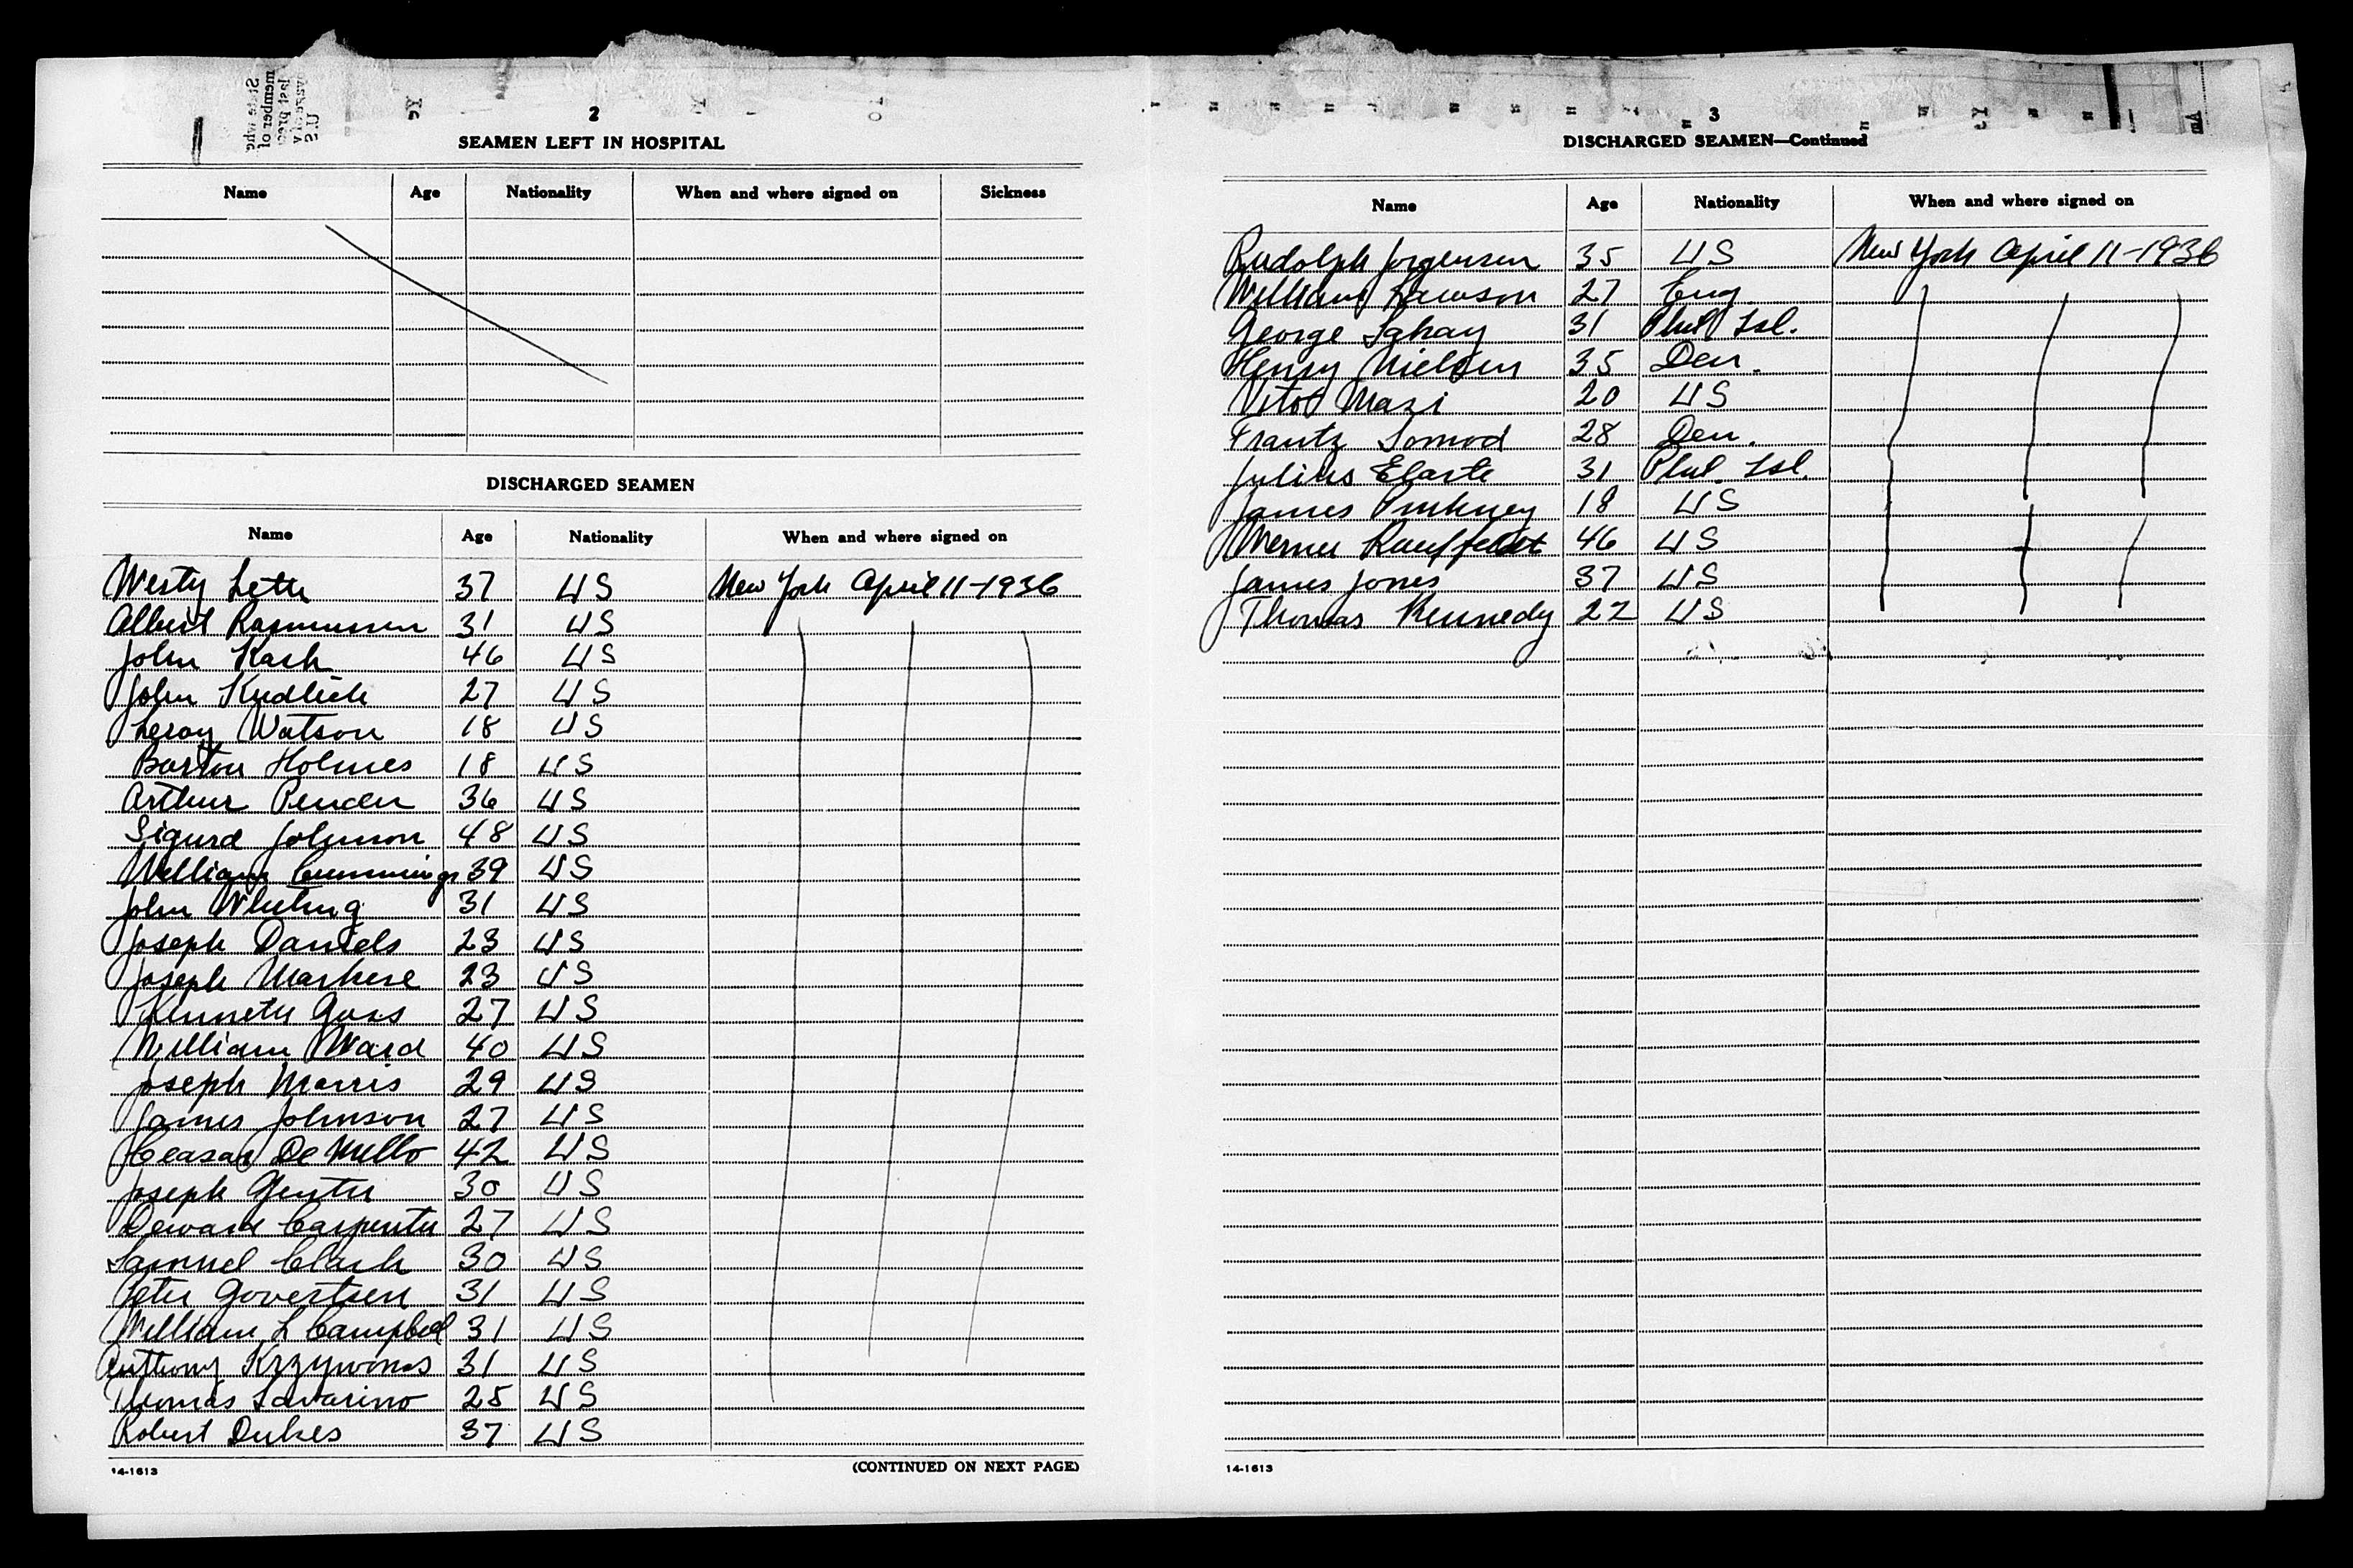 2
SEAMEN LEFT IN HOSPITAL
Name Age Nationality When and where signed on Sickness
DISCHARGED SEAMEN
Name Age Nationality When and where signed on
Westy 37 US New York April 11-1936
Albert Rasmussen 31 US
John Kash 46 US
John Kudlich 27 US
Leroy Watson 18 US
Barton Holmes 18 US
Arthur 36 US
Sigurd Johnson 48 US
William Cummings 39 US
John Whiting 31 US
Joseph Daniels 23 US
Joseph 23 US
Kenneth 27 US
William Ward 40 US
Joseph Morris 29 US
James Johnson 27 US
Ceasar De Mello 42 US
Joseph 30 US
Deward Carpenter 27 US
Samuel Clark 30 US
Peter Govertsen 31 US
William L Campbell 31 US
Anthony Krzywonos 31 US
Thomas Savarino 25 US
Robert Dukes 37 US
14-1613 (CONTINUED ON NEXT PAGE)
3
DISCHARGED SEAMEN—Continued
Name Age Nationality When and where signed on
Rudolph Jorgensen 35 US New York April 11-1936
William Lawson 27 Eng.
George 31 Phil Isl.
Henry Nielsen 35 Den.
20 US
Frantz 28 Den.
Julius Elarte 31 Phil. Isl.
James Pinkney 18 US
Werner 46 US
James Jones 37 US
Thomas Kennedy 22 US
14-1613